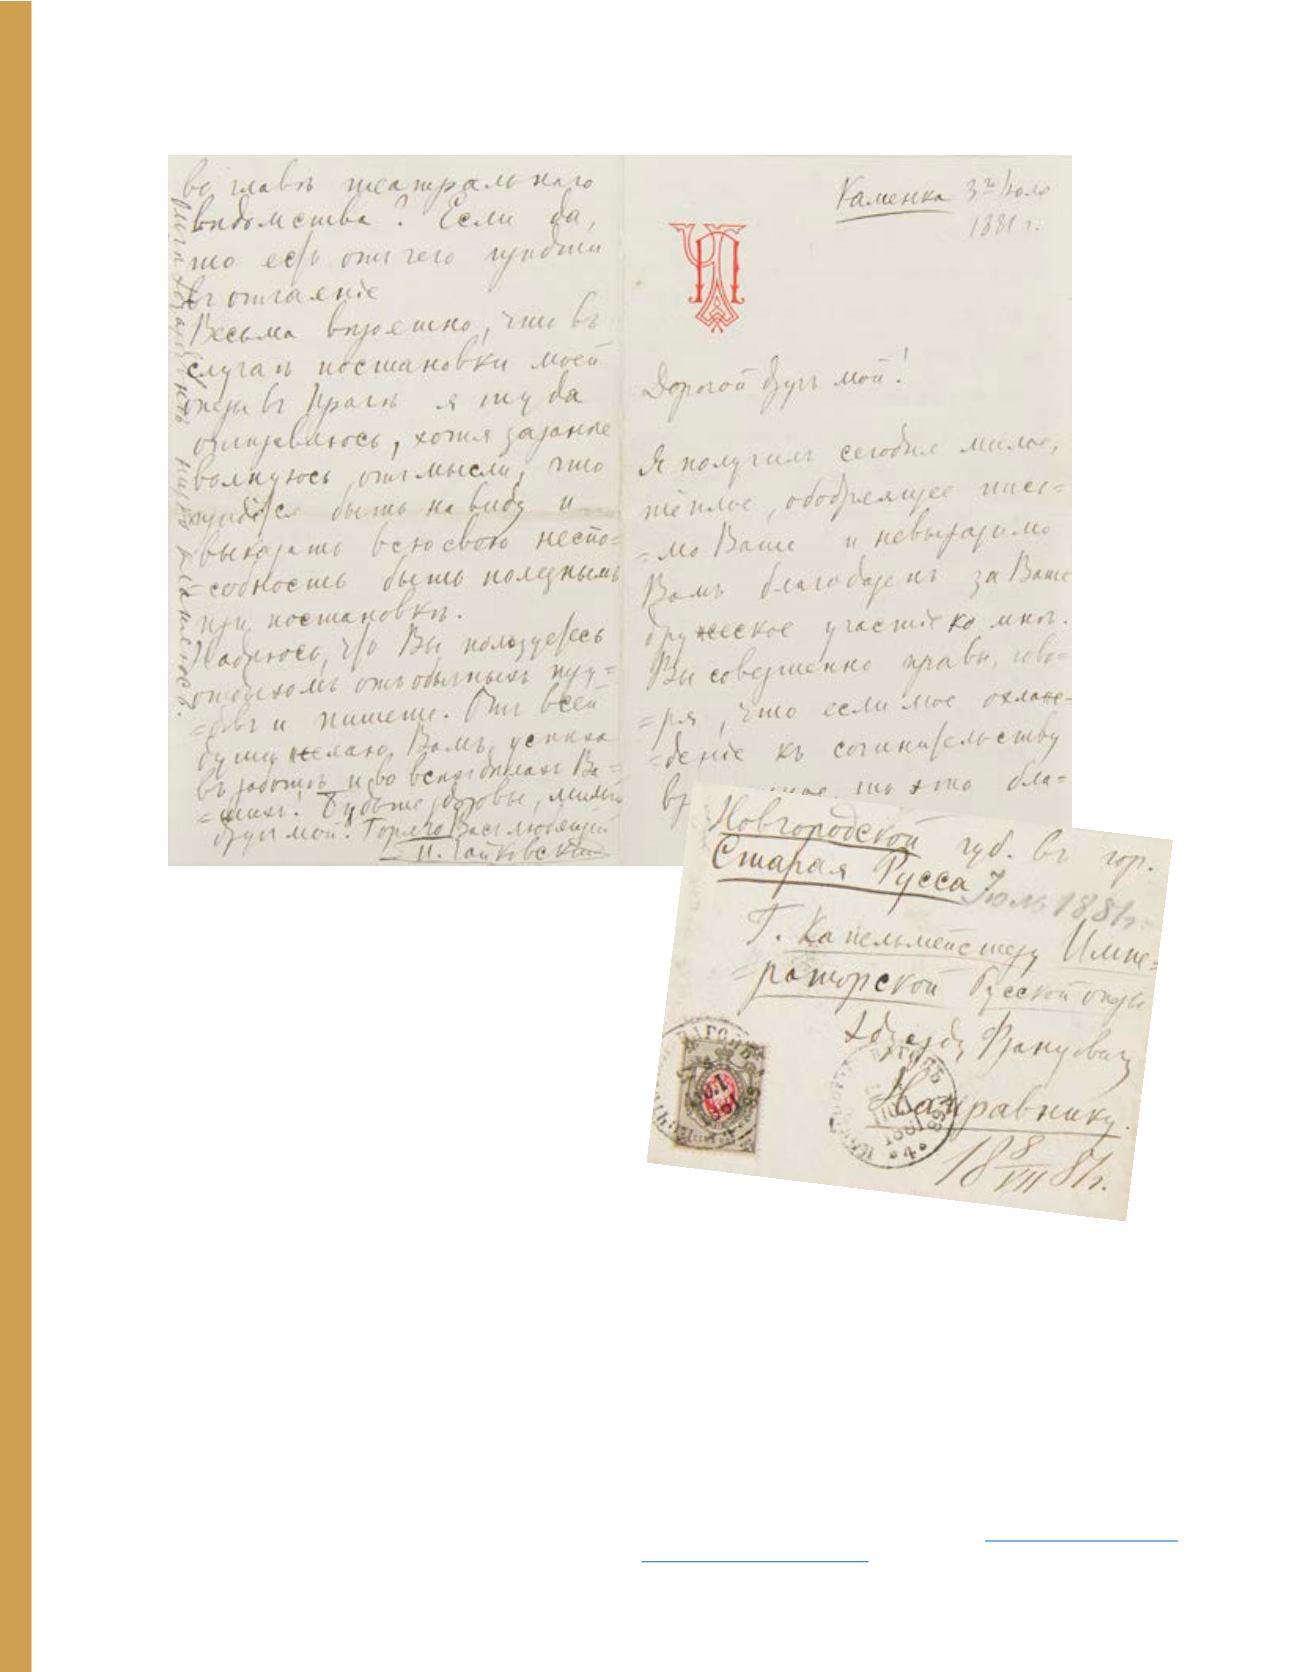 во главѣ театральнаго
вѣдомства? Если да,
то есть отчего прійти
въ отчаяніе
Весьма вѣроятно, что въ
случаѣ постановки моей
оперы въ Прагѣ я туда
отправлюсь, хотя заранѣе
волнуюсь отъ мысли, что
придется быть на виду и
выказать всю свою неспо=
=собность быть полезнымъ
при постановкѣ.
Надѣюсь, что Вы пользуетесь
отдыхомъ отъ обычныхъ тру=
=довъ и пишете. Отъ всей
души желаю Вамъ успѣха
въ работѣ и во всѣхъ дѣлахъ Ва=
=шихъ! Будьте здоровы, милый
другъ мой! Горячо Васъ любящій
П. Чайковскій
кланяюсь.
Каменка 3го Іюля
1881 г.
ПЧ
Дорогой другъ мой!
Я получилъ сегодня милое,
тёплое, ободряющее пись=
=мо Ваше и невыразимо
Вамъ благодаренъ за Ваше
дружеское участіе ко мнѣ.
Вы совершенно правы, гово=
=ря, что если мое охлаж=
=деніе къ сочинительству
то это бла=
Новгородской губ. въ гор.
Старая Русса
Іюль 1881 г.
Г. Капельмейстеру Импе=
=раторской Русской оперы
Эдуарду Францовичу
Направнику.
18 8/VII 81 г.
1881